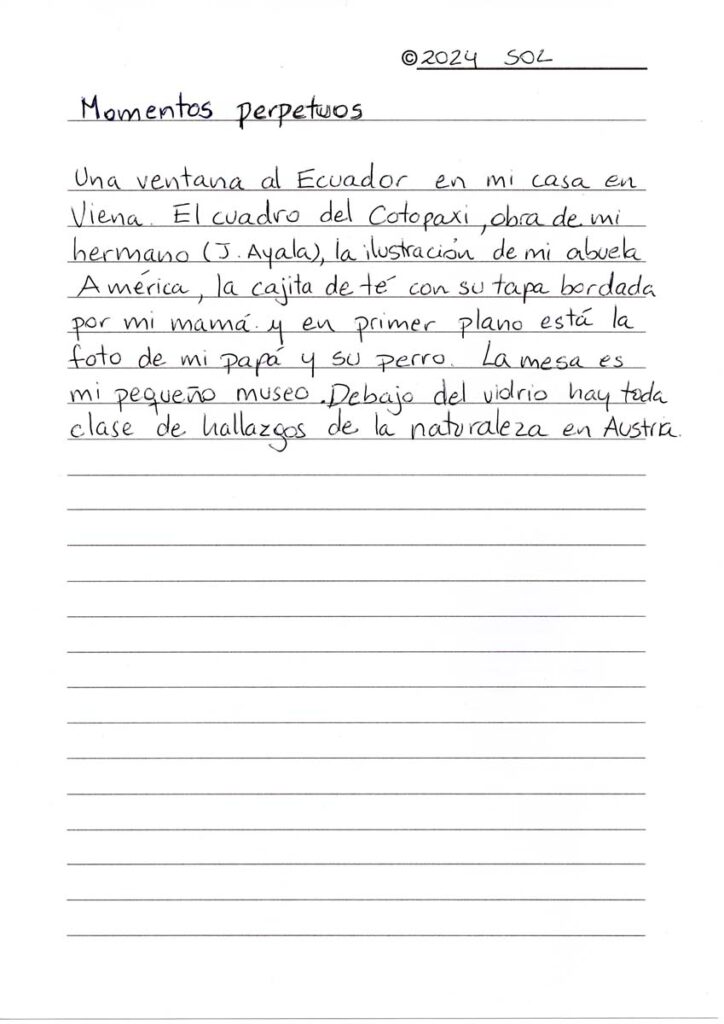 ©2024 SOL
Momentos perpetuos
Una ventana al Ecuador en mi casa en
Viena. El cuadro del Cotopaxi, obra de mi
hermano (J. Ayala), la ilustración de mi abuela
América, la cajita de té con su tapa bordada
por mi mamá y en primer plano está la
foto de mi papá y su perro. La mesa es
mi pequeño museo. Debajo del vidrio hay toda
clase de hallazgos de la naturaleza en Austria.